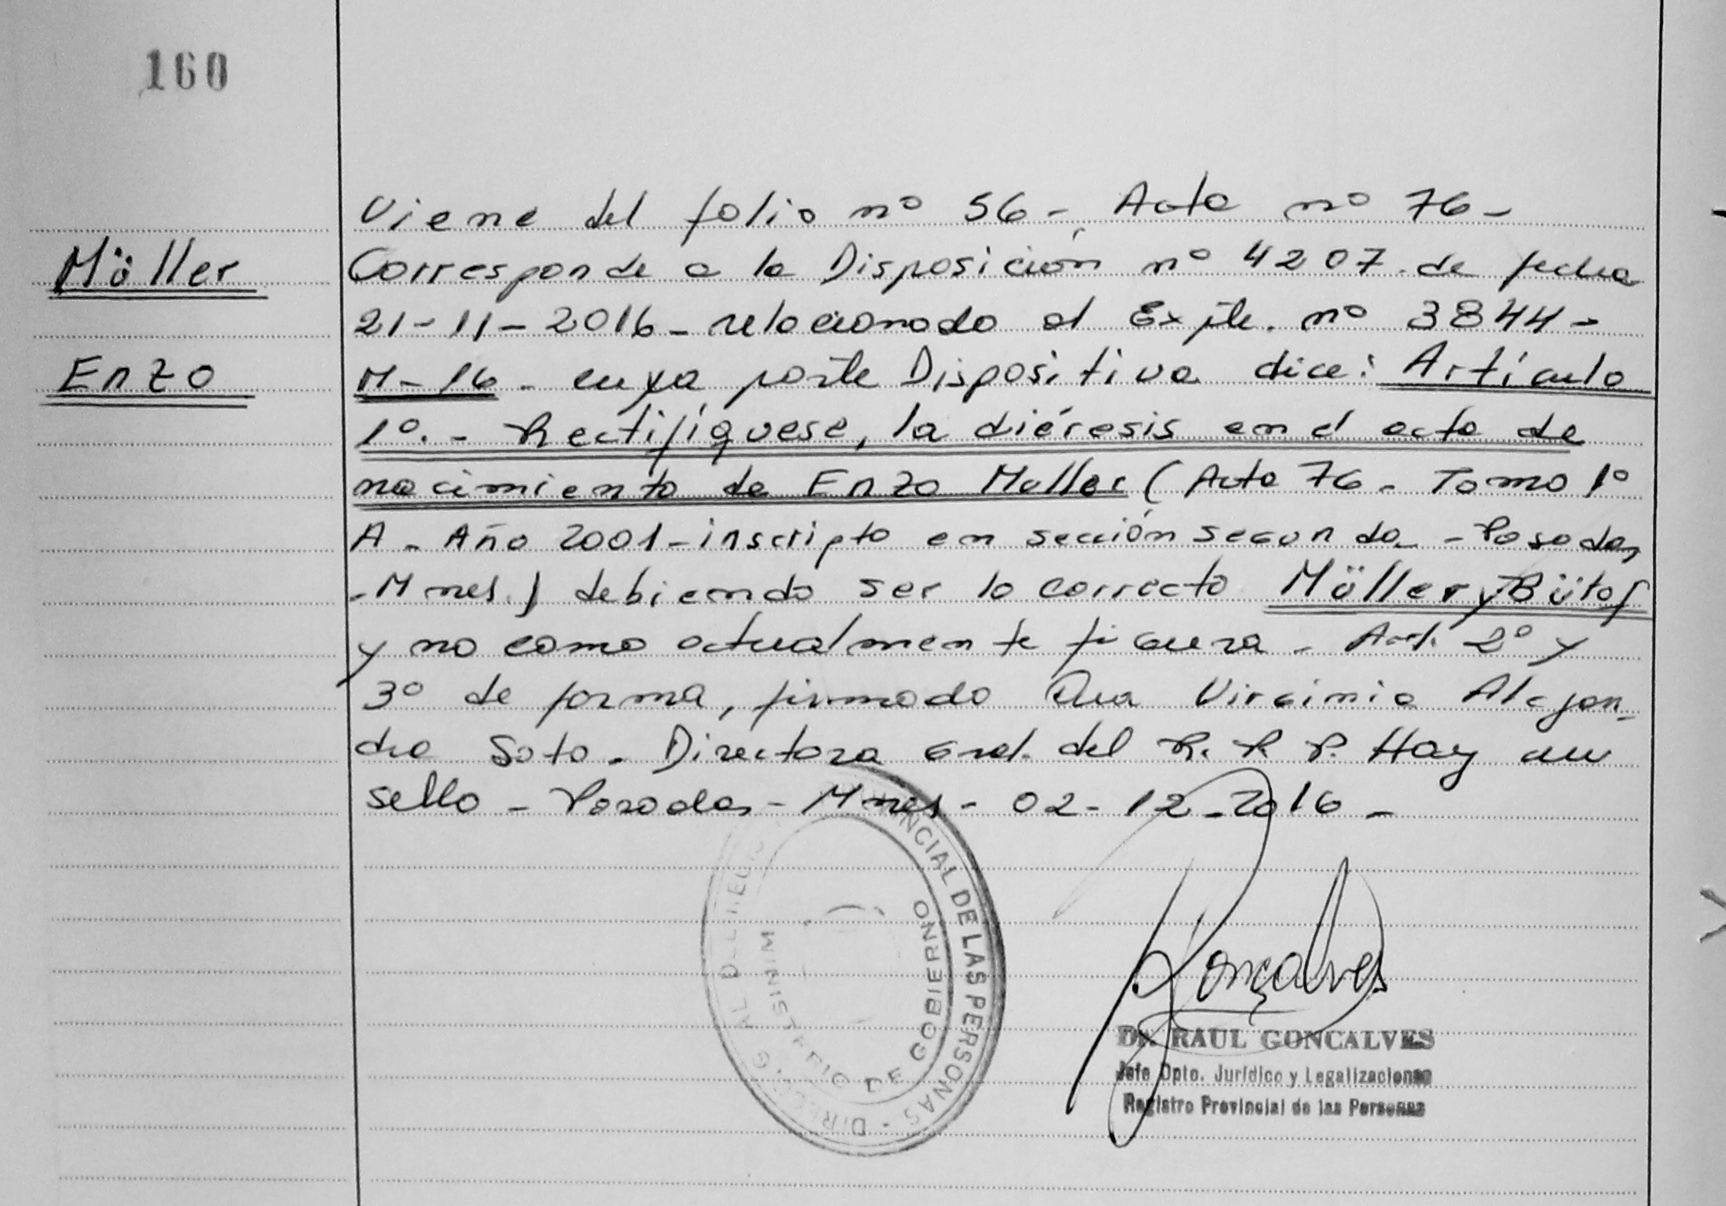 160
Müller
Enzo
Viene del folio nº 56 - Acta nº 76 -
Corresponde a la Disposición nº 4207 de fecha
21-11-2016 - relacionado al Expte. nº 3844 -
M-16 - cuya parte Dispositiva dice: Artículo
1º. - Rectifíquese, la diéresis en el acta de
nacimiento de Enzo Muller (Acta 76 - Tomo 1º
A - Año 2001 - inscripto en sección segunda - Posadas
- Mnes.) debiendo ser lo correcto Müller y Bütof
y no como actualmente figura - Art. 2º y
3º de forma, firmado Dra Virginia Alejan-
dra Soto - Directora Gral. del R. P. P. Hay un
sello - Posadas - Mnes - 02-12-2016 -
VINCIAL DE LAS PERSONAS - DIREC
MINISTERIO DE GOBIERNO
Gonçalves
Dr. RAUL GONCALVES
Jefe Dpto. Jurídico y Legalizaciones
Registro Provincial de las Personas